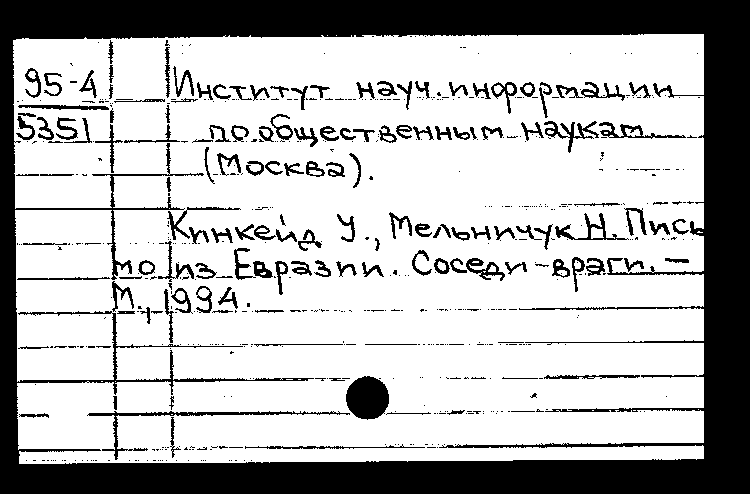 95-4
5351
Институт науч. информации
по общественным наукам.
(Москва).
Кинкейд У., Мельничук Н. Пись
мо из Евразии. Соседи-враги. —
М., 1994.